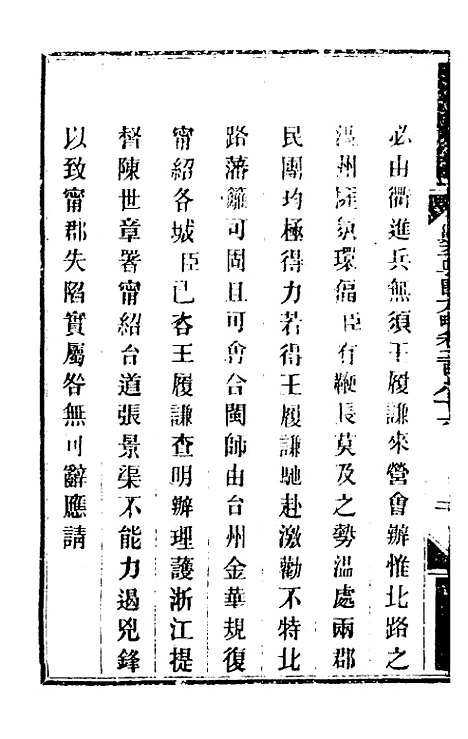 必由衢進兵無須王履謙來營會辦惟北路之
溫州賊氛環偪臣有鞭長莫及之勢溫處兩郡
民團均極得力若得王履謙馳赴激勸不特北
路藩籬可固且可會合閩師由台州金華規復
甯紹各城臣已咨王履謙查明辦理護浙江提
督陳世章署甯紹台道張景渠不能力遏兇鋒
以致甯郡失陷實屬咎無可辭應請